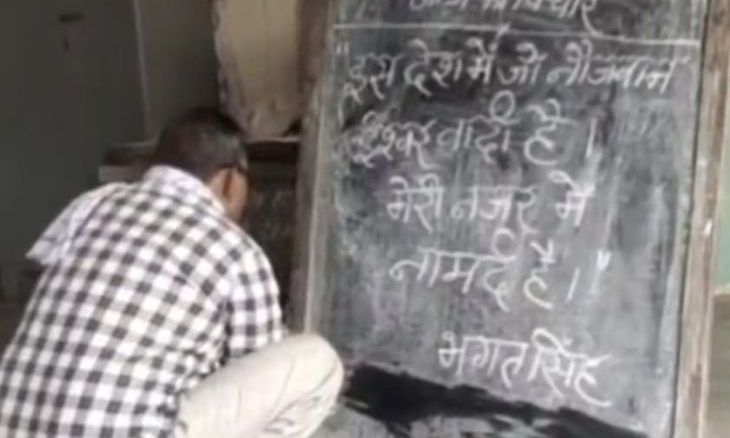 आज का विचार
"इस देश में जो नौजवान
ईश्वर वादी है।
मेरी नजर में
नामर्द है।"
भगत सिंह